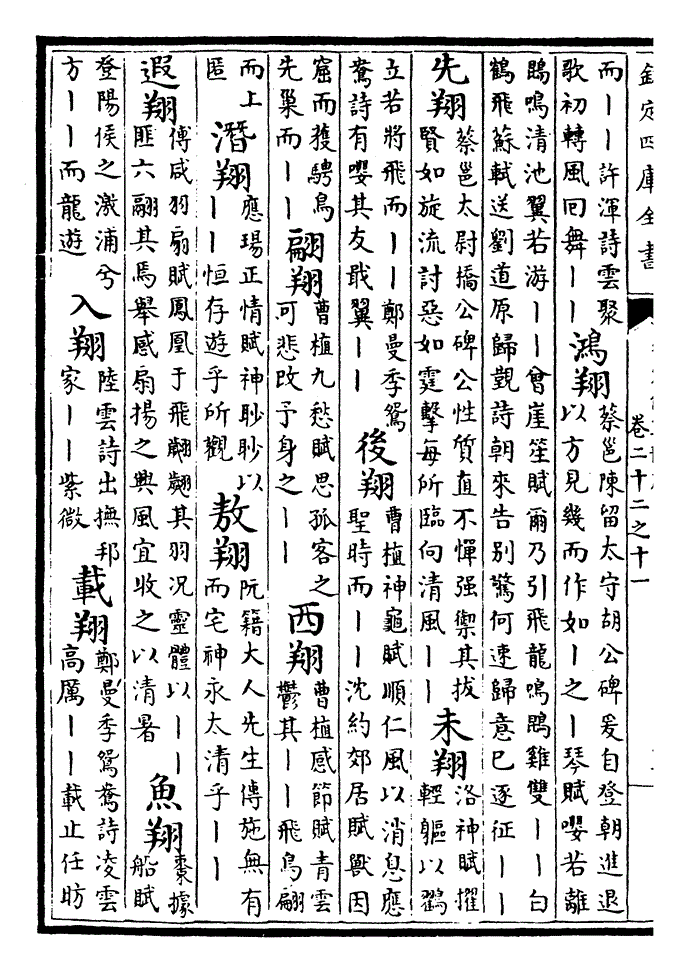 欽定四庫全書
卷二十二之十一
而丨丨許渾詩雲聚
歌初轉風回舞丨丨
鴻翔
蔡邕陳留太守胡公碑爰自登朝進退
以方見幾而作如丨之丨琴賦嚶若離
鵾鳴清池翼若游丨丨曾崖笙賦爾乃引飛龍鳴鵾雞雙丨丨白
鶴飛蘇軾送劉道原歸覲詩朝來告别驚何速歸意已逐征丨丨
先翔
蔡邕太尉橋公碑公性質直不憚强禦其拔
賢如旋流討惡如霆擊每所臨向清風丨丨
未翔
洛神賦擢
輕軀以鶴
立若將飛而丨丨鄭曼季鴛
鴦詩有嚶其友戢翼丨丨
後翔
曹植神龜賦順仁風以消息應
聖時而丨丨沈約郊居賦獸因
窟而獲騁鳥
先巢而丨丨
翩翔
曹植九愁賦思孤客之
可悲改予身之丨丨
西翔
曹植感節賦青雲
鬱其丨丨飛鳥翩
而上
匿
潛翔
應瑒正情賦神眇眇以
丨丨恒存遊乎所觀
敖翔
阮籍大人先生傳施無有
而宅神永太清乎丨丨
遐翔
傅咸羽扇賦鳳凰于飛翽翽其羽况靈體以丨丨
匪六翮其焉舉感扇揚之興風宜收之以清暑
魚翔
棗據
船賦
登陽侯之激浦兮
方丨丨而龍遊
入翔
陸雲詩出撫邦
家丨丨紫微
載翔
鄭曼季鴛鴦詩凌雲
高厲丨丨載止任昉